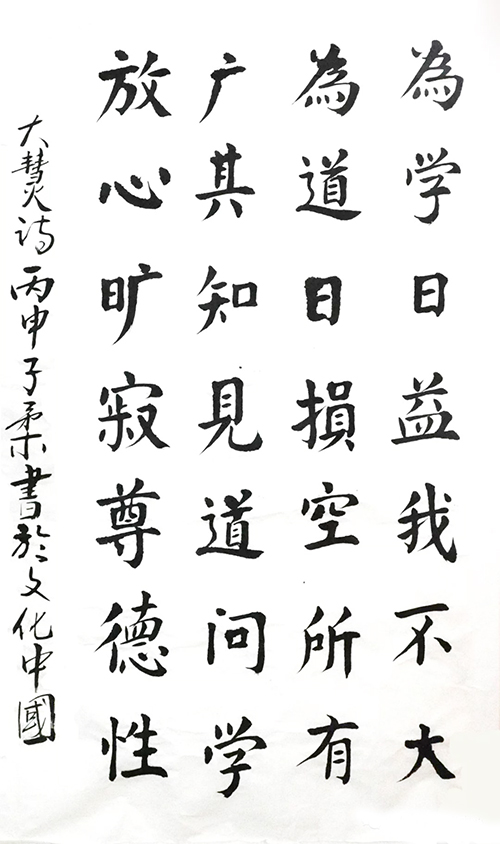 為学日益我不大
為道日損空所有
广其知見道问学
放心旷寂尊德性
大慧诗丙申子柔書於文化中國